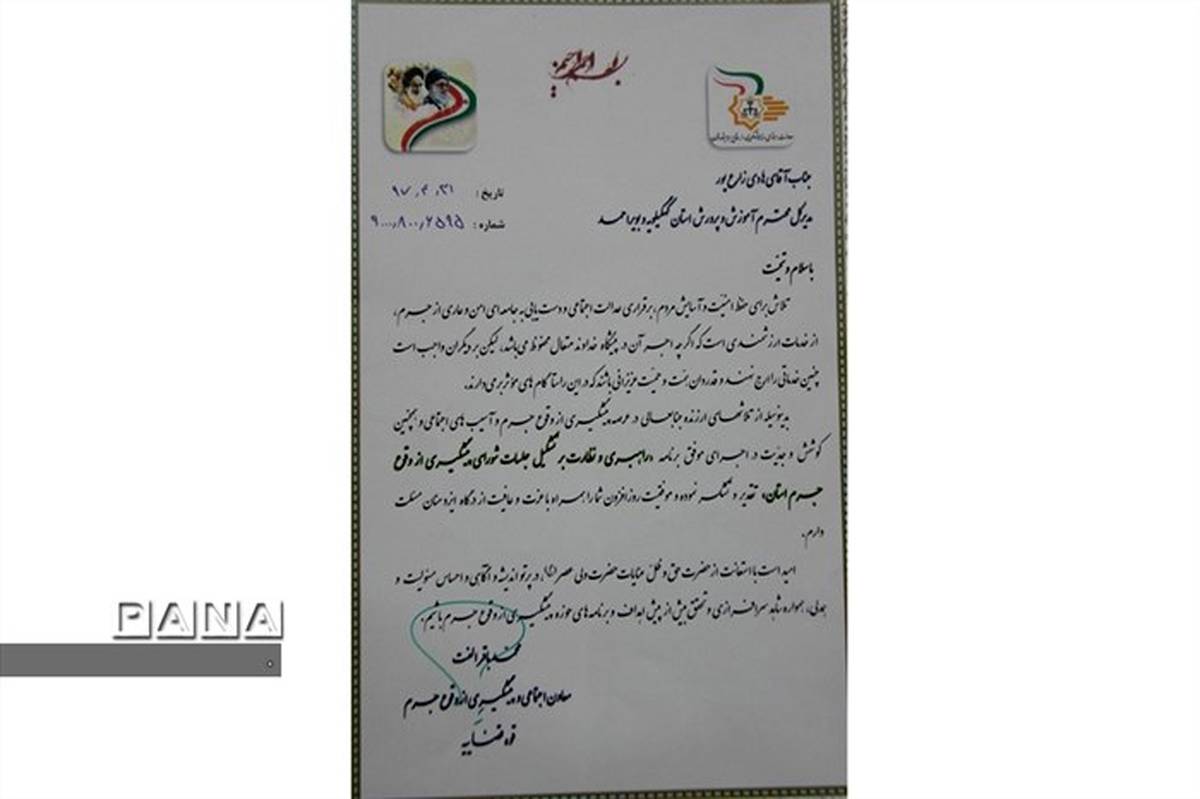 بسم الله الرحمن الرحیم
جناب آقای هادی زارع پور
مدیرکل محترم آموزش و پرورش استان کهگیلویه و بویراحمد
تاریخ : ۹۷٫۴٫۳۱
شماره : ۹۰۰۰٫۸۰۰٫۲۵۹۵
با سلام و تحیّت
تلاش برای حفظ امنیّت و آسایش مردم، برقراری عدالت اجتماعی و دست یابی به جامعه ای امن و عاری از جرم،
از خدمات ارزشمندی است که اگرچه اجر آن در پیشگاه خداوند متعال محفوظ می‌باشد، لیکن بر دیگران واجب است
چنین خدماتی را ارج نهند و قدردان همّت و حمیّت عزیزانی باشند که در این راستا گام های مؤثر بر می دارند.
بدینوسیله از تلاشهای ارزنده جنابعالی در عرصه پیشگیری از وقوع جرم و آسیب های اجتماعی و همچنین
کوشش و جدیّت در اجرای موفق برنامه «راهبری و نظارت بر تشکیل جلسات شورای پیشگیری از وقوع
جرم استان» تقدیر و تشکر نموده و موفقیّت روزافزون شما را همراه با عزت و عافیت از درگاه ایزد منان مسئلت
دارم.
امید است با استعانت از حضرت حق و ظلّ عنایات حضرت ولی عصر(عج)، در پرتو اندیشه و آگاهی و احساس مسئولیت و
همدلی، همواره شاهد سرافرازی و تحقق بیش از پیش اهداف و برنامه های حوزه پیشگیری از وقوع جرم باشیم.
محمدباقر الفت
معاون اجتماعی و پیشگیری از وقوع جرم
قوه قضاییه
PANA